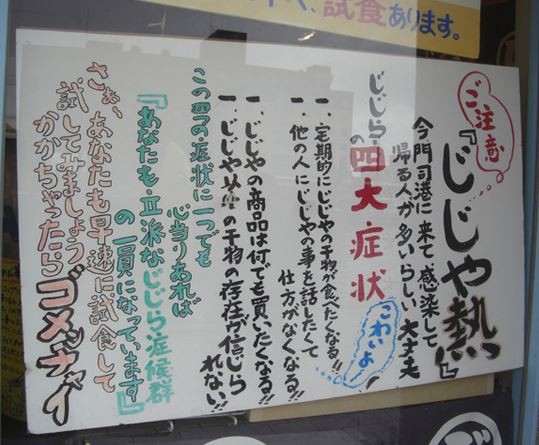 、試食あります。
ご注意
『じじや熱』
今門司港に来て感染して
帰る人が多いらしい、大丈夫
じじらーの四大症状
こわいよ
一、定期的にじじやの干物が食べたくなる!!
一、他の人にじじやの事を話したくて
仕方がなくなる!!
一、じじやの商品は何でも買いたくなる!!
一、じじや以外の干物の存在が信じら
れない!!
この四つの症状に一つでも
心当りあれば
『あなたも立派なじじら症候群
の一員になっています』
さぁ、あなたも早速に試食して
試してみましょう
かかちゃったらゴメンナチャイ